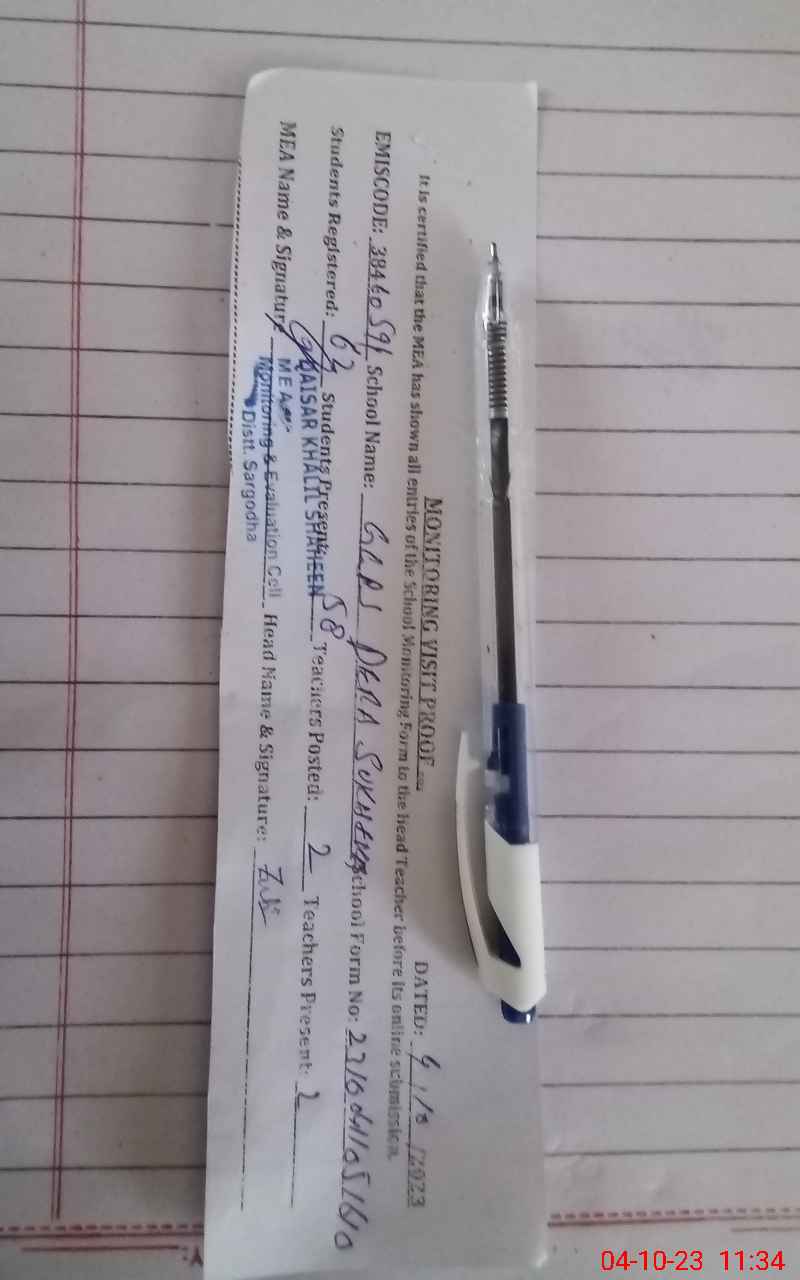 MONITORING VISIT PROOF
DATED: 4 / 10 /2023
It is certified that the MEA has shown all entries of the School Monitoring Form to the head Teacher before its online submission.
EMISCODE: 38460591 School Name: GGPS DERA SUKHEWA School Form No:
Students Registered: 62 Students Present: 58 Teachers Posted: 2 Teachers Present: 2
MEA Name & Signature Head Name & Signature:
QAISAR KHALIL SHAHEEN
MEA
Monitoring & Evaluation Cell
Distt. Sargodha
04-10-23 11:34